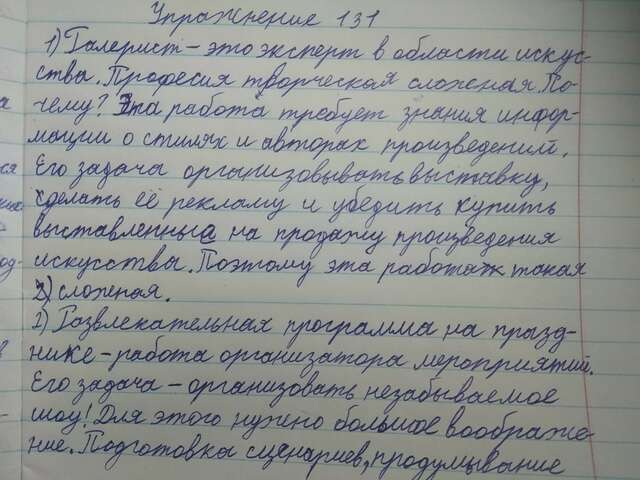 Упражнение 131
1) Галерист – это эксперт в области искус-
ства. Професия творческая сложная По-
чему? Эта работа требует знания инфор-
мации о стилях и авторах произведений.
Его задача организовывать выставку,
сделать её рекламу и убедить купить
выставленные на продажу произведения
искусства. Поэтому эта работа такая
сложная.
2) Развлекательная программа на празд-
нике – работа организатора мероприятий.
Его задача – организовать незабываемое
шоу! Для этого нужно большое воображе-
ние. Подготовка сценариев, продумывание